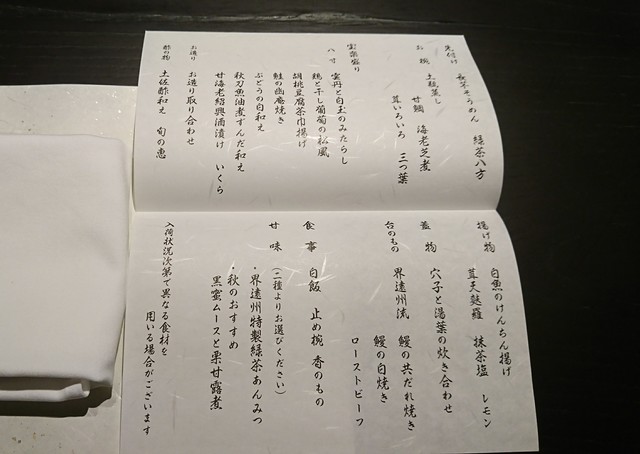 先付け 長芋そうめん 緑茶八方
お椀 土瓶蒸し
甘鯛 海老芝煮
茸いろいろ 三つ葉
宝楽盛り
八寸 雲丹と白玉のみたらし
鶏と干し葡萄の松風
胡桃豆腐茶巾揚げ
鮭の幽庵焼き
ぶどうの白和え
秋刀魚油煮ずんだ和え
甘海老紹興酒漬け いくら
お造り お造り取り合わせ
酢の物 土佐酢和え 旬の恵
揚げ物 白魚のけんちん揚げ
茸天麩羅 抹茶塩 レモン
蓋物 穴子と湯葉の炊き合わせ
台のもの 界遠州流 鰻の共だれ焼き
鰻の白焼き
ローストビーフ
食事 白飯 止め椀 香のもの
甘味 (二種よりお選びください)
・界遠州特製緑茶あんみつ
・秋のおすすめ
黒蜜ムースと栗甘露煮
入荷状況次第で異なる食材を
用いる場合がございます